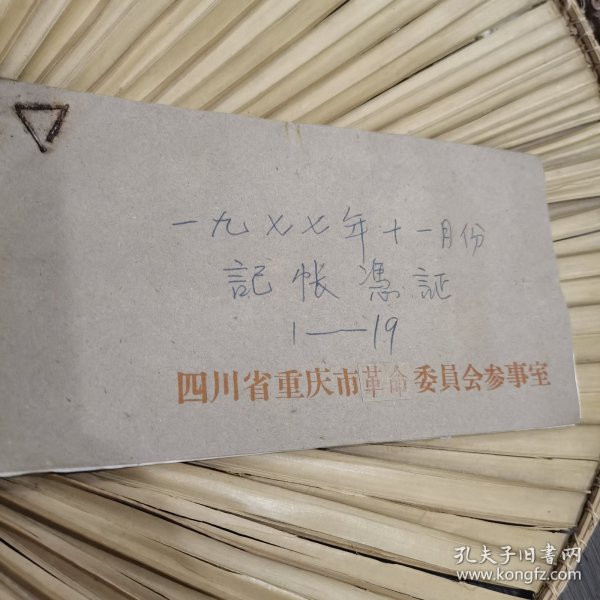 一九七七年十一月份
記帐憑証
1——19
四川省重庆市革命委員会参事室
孔夫子旧书网
www.kongfz.com